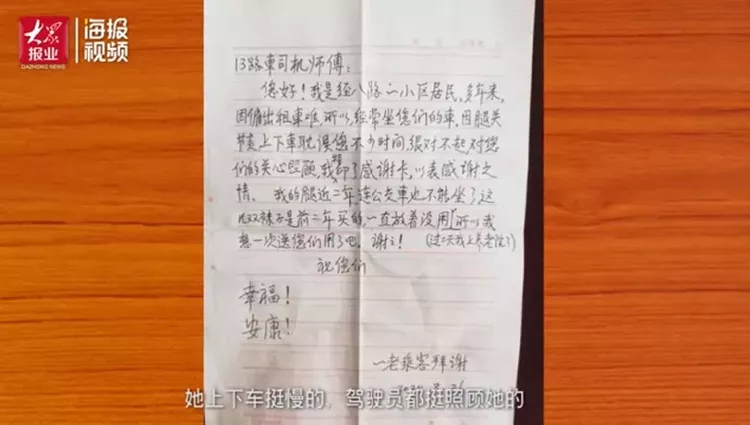 大众报业
DAZHONG NEWS
海报视频
13路車司机师傅：
您好！我是经八路一小区居民，多年来，
因俯出租車难，所以经常坐您们的車，因腿关
节炎上下车耽误您不少时间，很对不起，对您
们的关心照顾，我特印了感谢卡，以表感谢之
情。我的腿近二年连公交車也不能坐了这
几双袜子是前二年买的一直放着没用，所以我
想一次送您们用了吧，谢谢！（过二天我上养老院了）
祝您们
幸福！
安康！
一老乘客拜谢
她上下车挺慢的，驾驶员都挺照顾她的